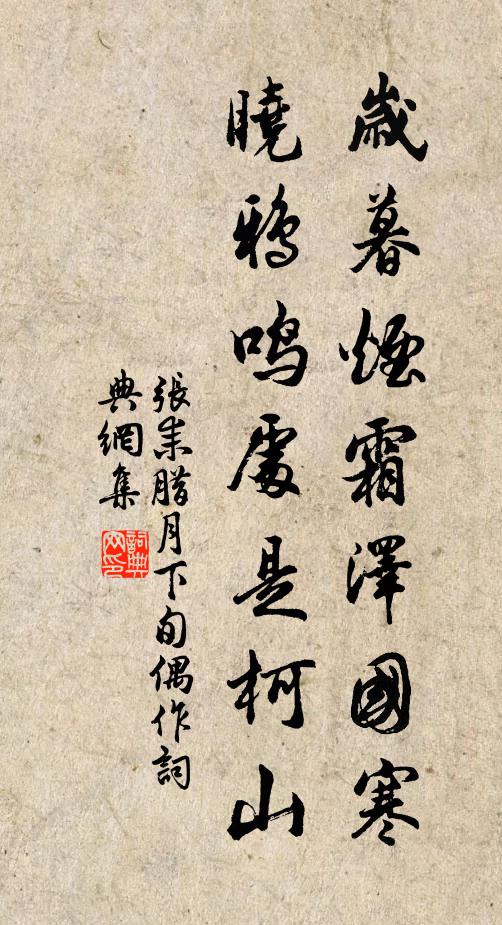 歲暮煙霜澤國寒
曉鴉鳴處是柯山
張耒臘月下旬偶作詞
典網集
詞典
网印